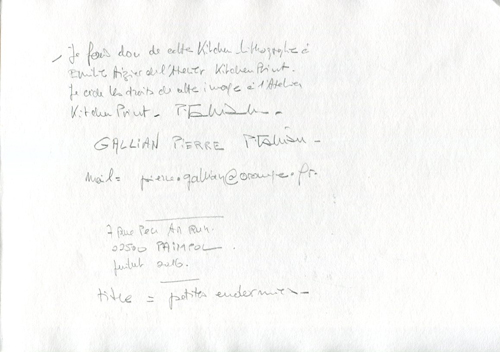 Je fais don de cette Kitchen Lithographie à
Emilie Aizier de l'Atelier Kitchen Print.
Je cède les droits de cette image à l'Atelier
Kitchen Print.
GALLIAN PIERRE
mail = pierre.gallian@orange.fr
7 Rue
22500 PAIMPOL.
juillet 2016.
titre = petites endormies